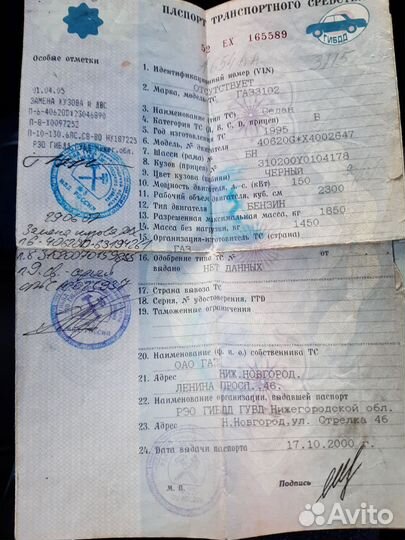 ПАСПОРТ ТРАНСПОРТНОГО СРЕДСТВ
52 ЕХ 165589
ГИБДД
Особые отметки
1.04.05
ЗАМЕНА КУЗОВА И ДВС
П-В-Х0097252
РЭО ГИБДД
1. Идентификационный номер (VIN)
ОТСУТСТВУЕТ
2. Марка, модель ТС ГАЗ3102
3. Наименование (тип ТС) Седан
4. Категория ТС (А, В, С, D, прицеп) В
5. Год изготовления ТС 1995
6. Модель, № двигателя 40620G*X4002647
7. Шасси (рама) № БН
8. Кузов (прицеп) № 310200Y0104178
9. Цвет кузова (кабины) ЧЕРНЫЙ
10. Мощность двигателя, л.с. (кВт) 150
11. Рабочий объем двигателя, куб. см 2300
12. Тип двигателя БЕНЗИН
13. Разрешенная максимальная масса, кг 1850
14. Масса без нагрузки, кг 1450
15. Организация-изготовитель ТС (страна)
ГАЗ
16. Одобрение типа ТС № от
выдано НЕТ ДАННЫХ
17. Страна вывоза ТС
18. Серия, № удостоверения, ГТД
19. Таможенные ограничения
20. Наименование (ф. и. о.) собственника ТС
ОАО ГАЗ
21. Адрес НИЖ.НОВГОРОД.
ЛЕНИНА ПРОСП. 46.
22. Наименование организации, выдавшей паспорт
РЭО ГИБДД ГУВД Нижегородской обл.
23. Адрес Н.Новгород.ул. Стрелка 46
24. Дата выдачи паспорта 17.10.2000 г.
М. П. Подпись
Avito